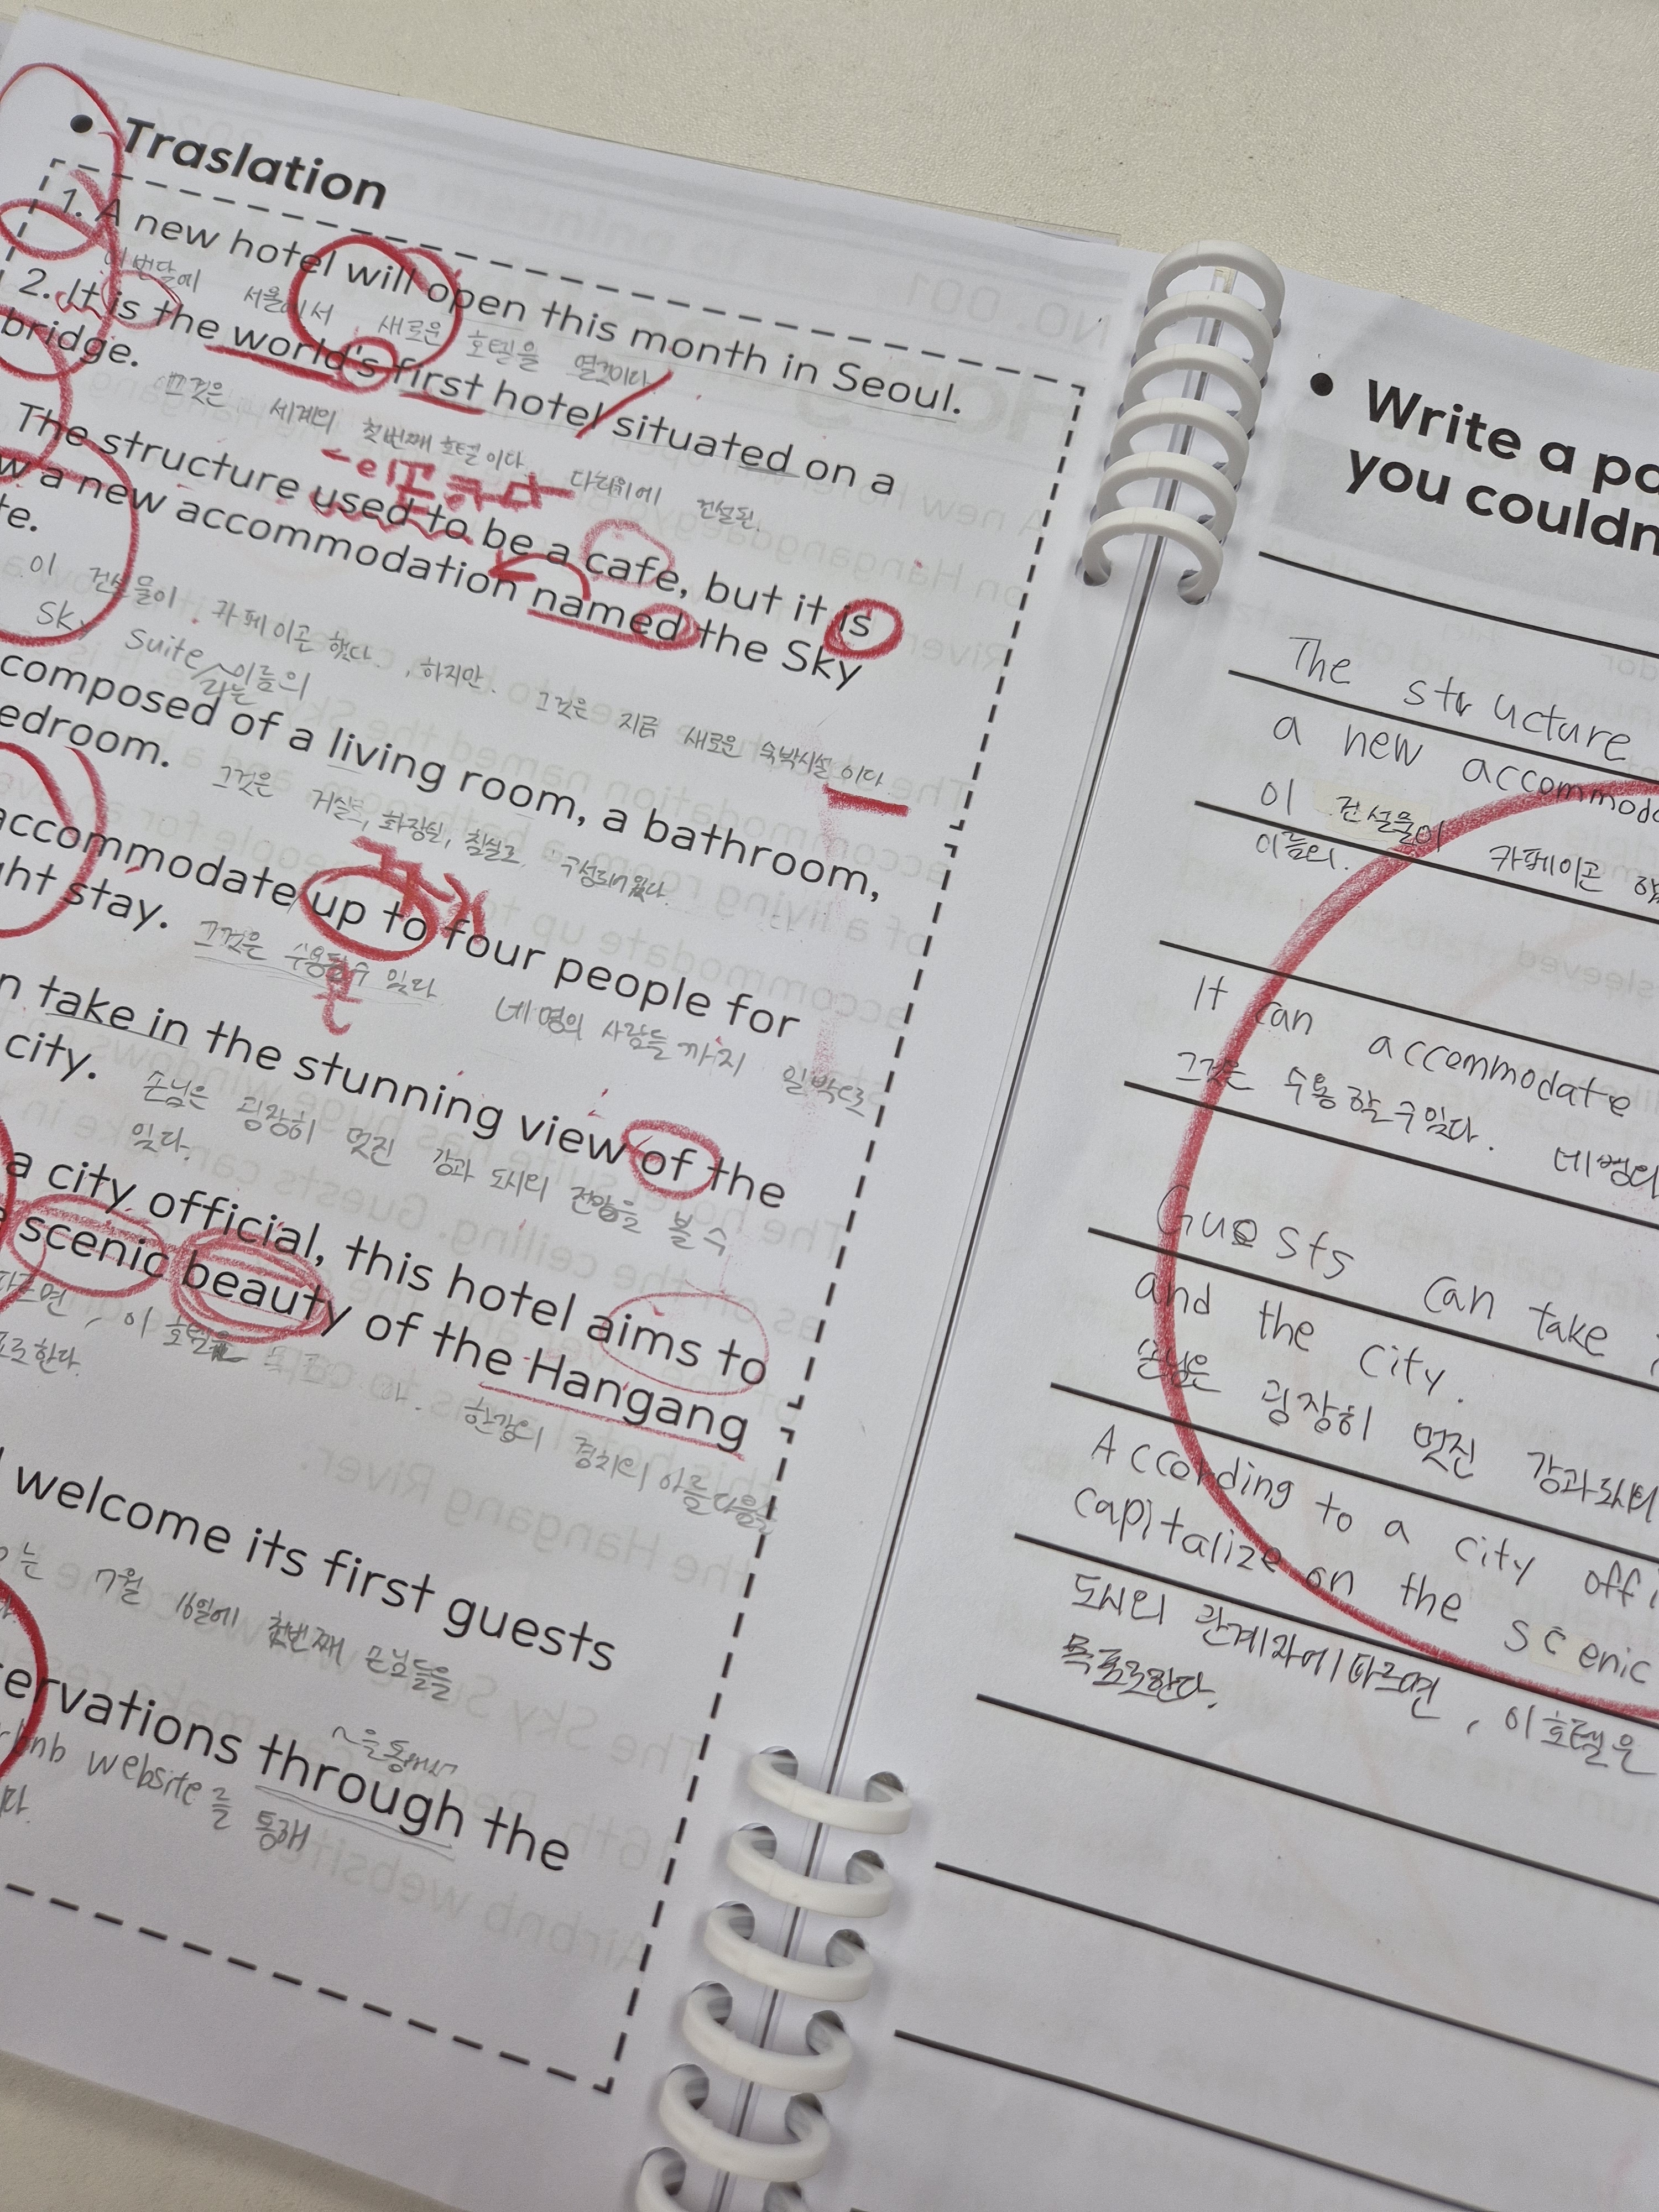 • Traslation
1. A new hotel will open this month in Seoul.
이번달에 서울에서 새로운 호텔을 열것이다
2. It is the world's first hotel situated on a
bridge.
그것은 세계의 첫번째 호텔이다 다리위에 건설된.
The structure used to be a cafe, but it is
w a new accommodation named the Sky
te.
이 건설물이 카페이곤 했다. , 하지만. 그것은 지금 새로운 숙박시설 이다.
Sky Suite 라는 ~이름의
composed of a living room, a bathroom,
edroom.
그것은 거실, 화장실, 침실로 구성되어있다.
accommodate up to four people for
ght stay.
그것은 수용할수 있다 네명의 사람들 까지 일박으로
n take in the stunning view of the
city.
손님은 굉장히 멋진 강과 도시의 전망을 볼 수
있다.
a city official, this hotel aims to
scenic beauty of the Hangang
따르면, 이 호텔은 한강의 경치의 아름다움을
표로한다.
welcome its first guests
는 7월 16일에 첫번째 손님들을
ervations through the
~을 통해서
rbnb website를 통해
다.
• Write a pa
you couldn
The structure
a new accommoda
이 건설물이 카페이곤 했
이름의.
It can accommodate
그것은 수용할수있다. 네명의
Guests can take
and the city.
손님은 굉장히 멋진 강과도시의
According to a city offi
capitalize on the scenic
도시의 관계자에따르면, 이호텔은
목표로한다.